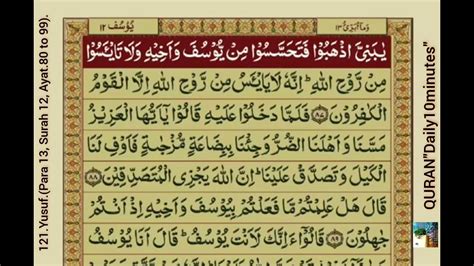 121.Yusuf.(Para 13, Surah 12, Ayat.80 to 99).
يُوسُف ١٢
وَمَآ اُبَرِّئُ ١٣
يٰبَنِيَّ اذْهَبُوْا فَتَحَسَّسُوْا مِنْ يُّوْسُفَ وَاَخِيْهِ وَلَا تَايْـَٔسُوْا
مِنْ رَّوْحِ اللّٰهِ ؕ اِنَّهٗ لَا يَايْـَٔسُ مِنْ رَّوْحِ اللّٰهِ اِلَّا الْقَوْمُ
الْكٰفِرُوْنَ ﴿۸۷﴾ فَلَمَّا دَخَلُوْا عَلَيْهِ قَالُوْا يٰۤاَيُّهَا الْعَزِيْزُ
مَسَّنَا وَاَهْلَنَا الضُّرُّ وَجِئْنَا بِبِضَاعَةٍ مُّزْجٰىةٍ فَاَوْفِ لَنَا
الْكَيْلَ وَتَصَدَّقْ عَلَيْنَا ؕ اِنَّ اللّٰهَ يَجْزِي الْمُتَصَدِّقِيْنَ ﴿۸۸﴾
قَالَ هَلْ عَلِمْتُمْ مَّا فَعَلْتُمْ بِيُوْسُفَ وَاَخِيْهِ اِذْ اَنْتُمْ
جٰهِلُوْنَ ﴿۸۹﴾ قَالُوْۤا ءَاِنَّكَ لَاَنْتَ يُوْسُفُ ؕ قَالَ اَنَا يُوْسُفُ
QURAN"Daily10minutes"